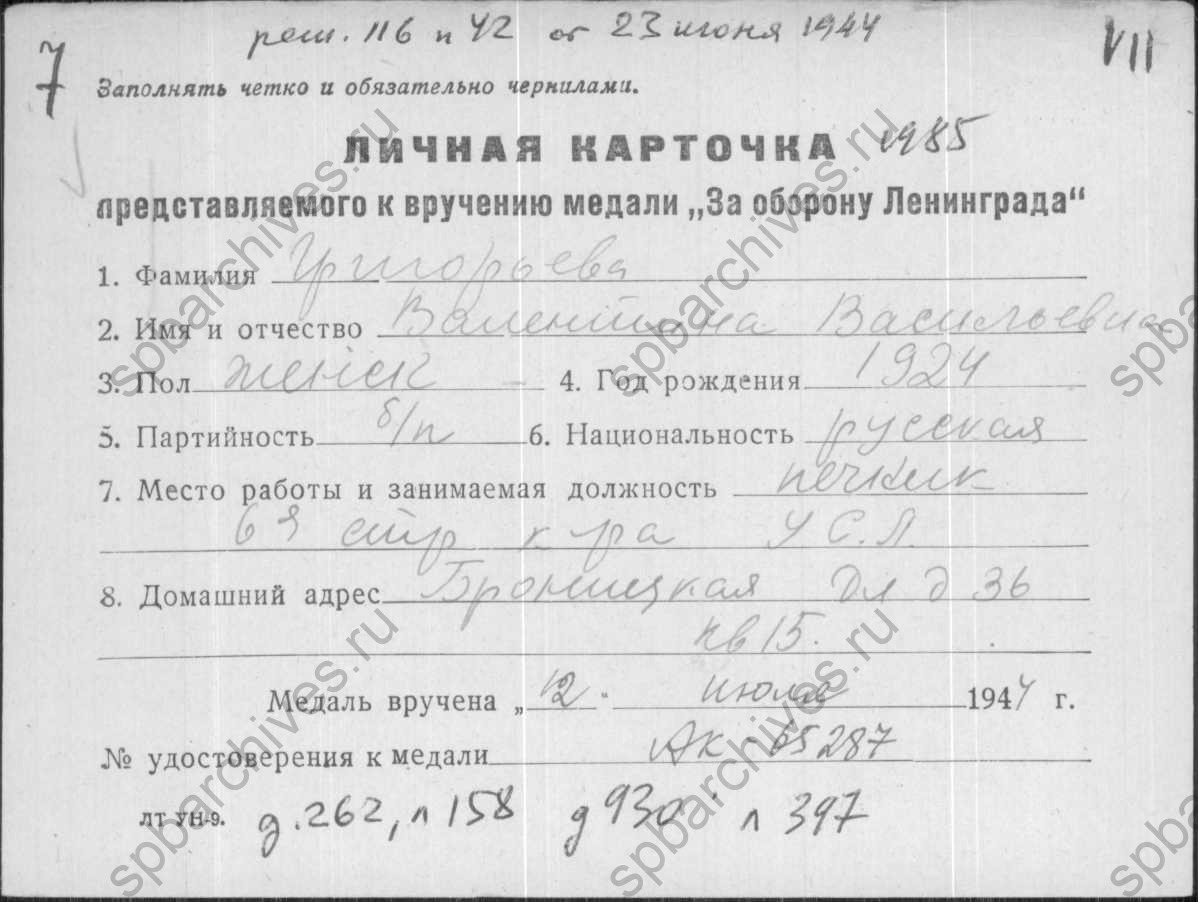 реш. 116 п 42 от 23 июня 1944
7
VII
Заполнять четко и обязательно чернилами.
ЛИЧНАЯ КАРТОЧКА 1985
представляемого к вручению медали „За оборону Ленинграда“
1. Фамилия Григорьева
2. Имя и отчество Валентина Васильевна
3. Пол женск 4. Год рождения 1924
5. Партийность б/п 6. Национальность русская
7. Место работы и занимаемая должность печник
6я стр к-ра УСЛ.
8. Домашний адрес Бронницкая дл д 36
кв 15.
Медаль вручена „12“ июля 1944 г.
№ удостоверения к медали АК-65287
ЛТ УН-9. д.262, л 158 д 930 л 397
spbarchives.ru
spbarchives.ru
spbarchives.ru
spbarchives.ru